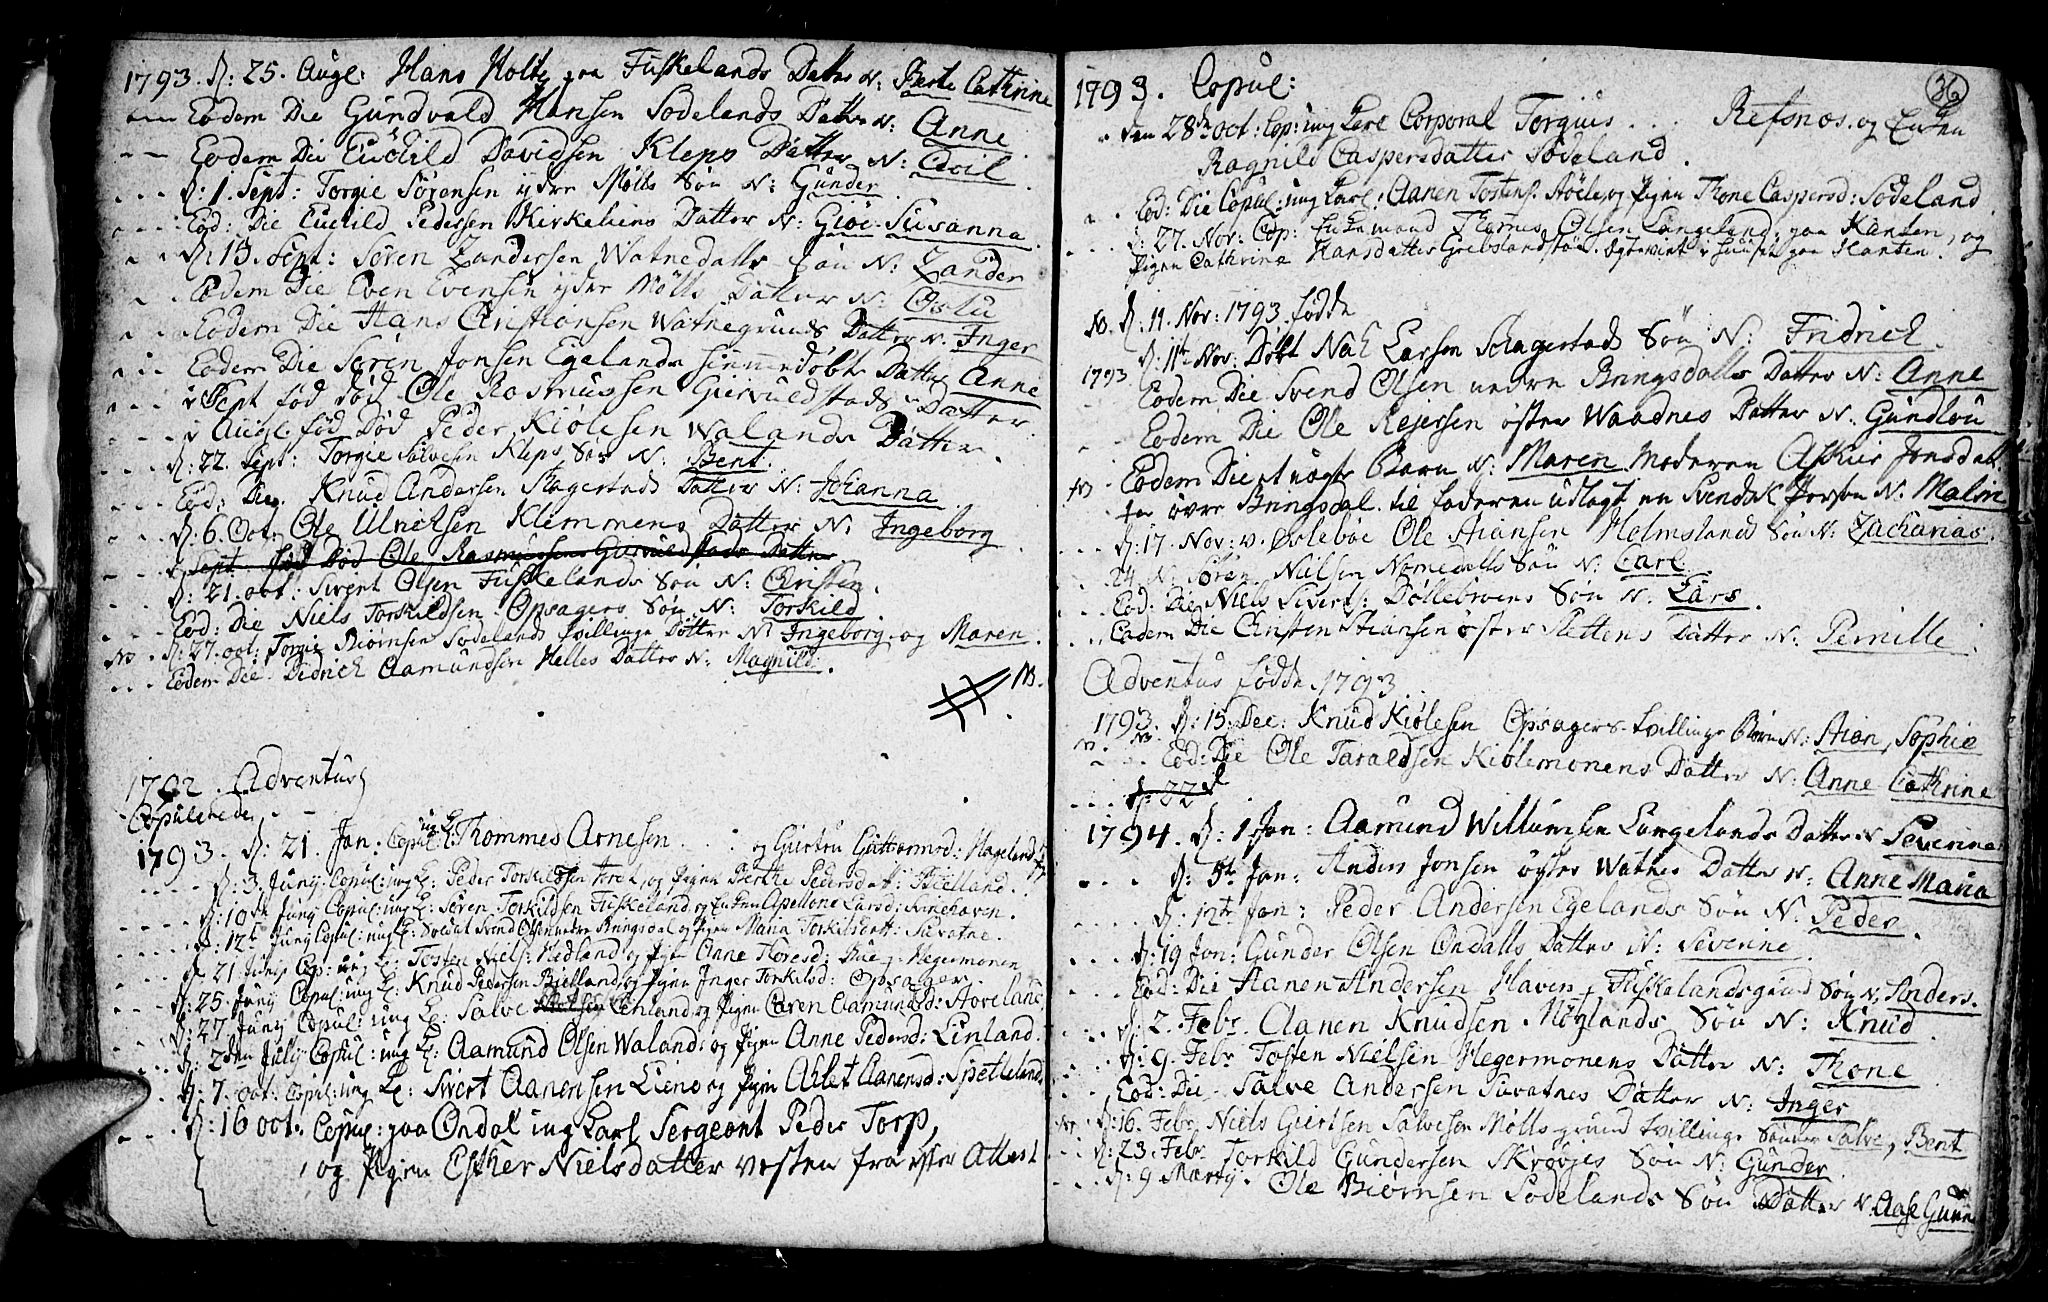 1793. D: 25. Augl: Hans Holte paa Fuskelands Datter N: Berte Cathrine
Eodem Die Gundvald Hansen Sodelands Datter N: Anne
Eodem Die Euchild Davidsen Kleps Datter N: Asil
D: 1. Sept: Torgie Sörensen ydre Mölts Sön N: Gunder
Eod: Die Euchild Pedersen Kirkeheiens Datter N: Gioe Susanna
D: 15. Sept: Sören Zandersen Watnedalls Sön N: Zander
Eodem Die Even Evensen ydre Mölts Datter N: Oslu
Eodem Die Hans Christiansen Watnegrunds Datter N. Inger
Eodem Die Sören Jonsen Egelands hiemmedöbt Datter Anne
i Sept fød død Ole Rasmussen Gieruldstads Datter
i Augl. fød Død Peder Kiölesen Walands Datter
D: 22. Sept: Torgie Salvesen Kleps Sön N: Bent
Eod: Die Knud Andersen Stagestads Datter N: Johanna
D: 6 Oct: Ole Ulrichsen Klemmens Datter N: Ingeborg
i Sept: fød Død Ole Rasmussens Gieruldstads Datter
D: 21. oct: Sivert Olsen Fuskelands Sön N: Christen
Eod: Die Niels Torkildsen Opsagers Sön N: Torkild
NB D: 27. oct: Torgie Biørnsen Sodelands tvillinge Døttre N: Ingeborg og Maren
Eodem Die Didrich Aamundsen Helles Datter N: Magnild
NB.
1792. Adventus
Copulerede
1793. D: 21. Jan: Copul: ung K: Thommes Arnesen .. og Giertru Guttormsd: Hageland
D: 3. Juny Copul: ung K: Peder Torkildsen og Pigen Berthe Pedersdatt: Bielland.
D: 10de Juny Copul: ung K: Sören Torkildsen Fuskeland og Enken Apellone Larsd: Svinehaven.
D: 12te Juny Copul: ung K: Soldat Svend Olsen nedre Bringsdal og Pigen Maria Torkildsdatt: Suvatne.
D 21 Juny Cop: ung K: Tosten Niels: Hedland og Pigen Anne Thoresd: Bue Hegermonen
D: 25. Juny Copul: ung K: Knud Pedersen Bielland og Pigen Inger Torkilsd: Opsager.
D: 27 Juny Copul: ung K: Salve Linland og Pigen Caren Aamundsd: Aaveland
D: 2den July Copul: ung K: Aamund Olsen Waland: og Pigen Anne Pedersd: Linland.
D: 7. oct: Copul: ung K: Sivert Aanensen Liene og Pigen Ahlet Aanensd: Spetteland
D: 16 oct. Copul: paa Ondal ung Karl Sergeant Peder Torp,
og Pigen Esther Nielsdatter vesten fra efter Attest
36
1793. Copul:
den 28de oct: Cop: ung Karl Corporal Torgius ... Refsnes. og Enken
Ragnild Caspersdatter Sodeland.
Eod: Die Copul: ung Karl: Aanen Tostens: Støle, og Pigen Thone Caspersd: Sodeland
D: 27. Nov: Cop: Enkemand Thomes Olsen Langeland, paa Kanten, og
Pigen Cathrina Hansdatter Greibsland Hanten.
NB. D: 11. Nov: 1793. födde
D: 11te Nov: Döbt Nah Larsen Schagestads Sön N: Fridrich.
1793 Eodem Die Svend Olsen nedre Bringsdalls Datter N: Anne
Eodem Die Ole Rejersen øster Waadnes Datter N. Gundlou
Eodem Die et uægte Barn N: Maren Moderen Askier Jonsdatt
NB fra øvre Bringsdal. til faderen udlagt en Svendsk Person N: Malin
D: 17. Nov. v. Oslebøe Ole Stiansen Holmslands Sön N: Zacharias.
24. N: Sören Nielsen Nomedalls Sön N: Carl.
Eod: Die Niels Siverts: Døllebroens Sön N: Lars.
Eadem Die Christen Stiansen øster Slettens Datter N: Pernille
Adventus födde. 1793
1793. D: 15. Dec: Knud Kiölesen Opsagers tvillinge Børn N: Stian, Sophie
Eod: Die Ole Taraldsen Kiolemonens Datter N: Anne Cathrine
D: 22d
1794. D: 1 Jan: Aamund Willumsen Langelands Datter N Severine
D: 5te Jan: Anders Jonsen øster Watnes Datter N: Anne Maria
D: 12te Jan: Peder Andersen Egelands Sön N: Peder.
D: 19 Jan: Gunder Olsen Ondalls Datter N: Severine
Eod: Die Aanen Andersen Haven, Fuskelandsgrund Sön N: Anders.
D: 2. Febr Aanen Knudsen Møglands Sön N: Knud
D: 9. Febr Tosten Nielsen Hegermonens Datter N: Thone
Eod: Die Salve Andersen Suvatnes Datter N: Inger
NB D: 16. Febr. Niels Giertsen Salvesen Møllsgrund tvillinge Sønner Salve, Bent
D: 23. Febr. Torkild Gundersen Skrøyes Sön N: Gunder
D: 9 Marty. Ole Biörnsen Sodelands Sön Datter N. Aase Gunn